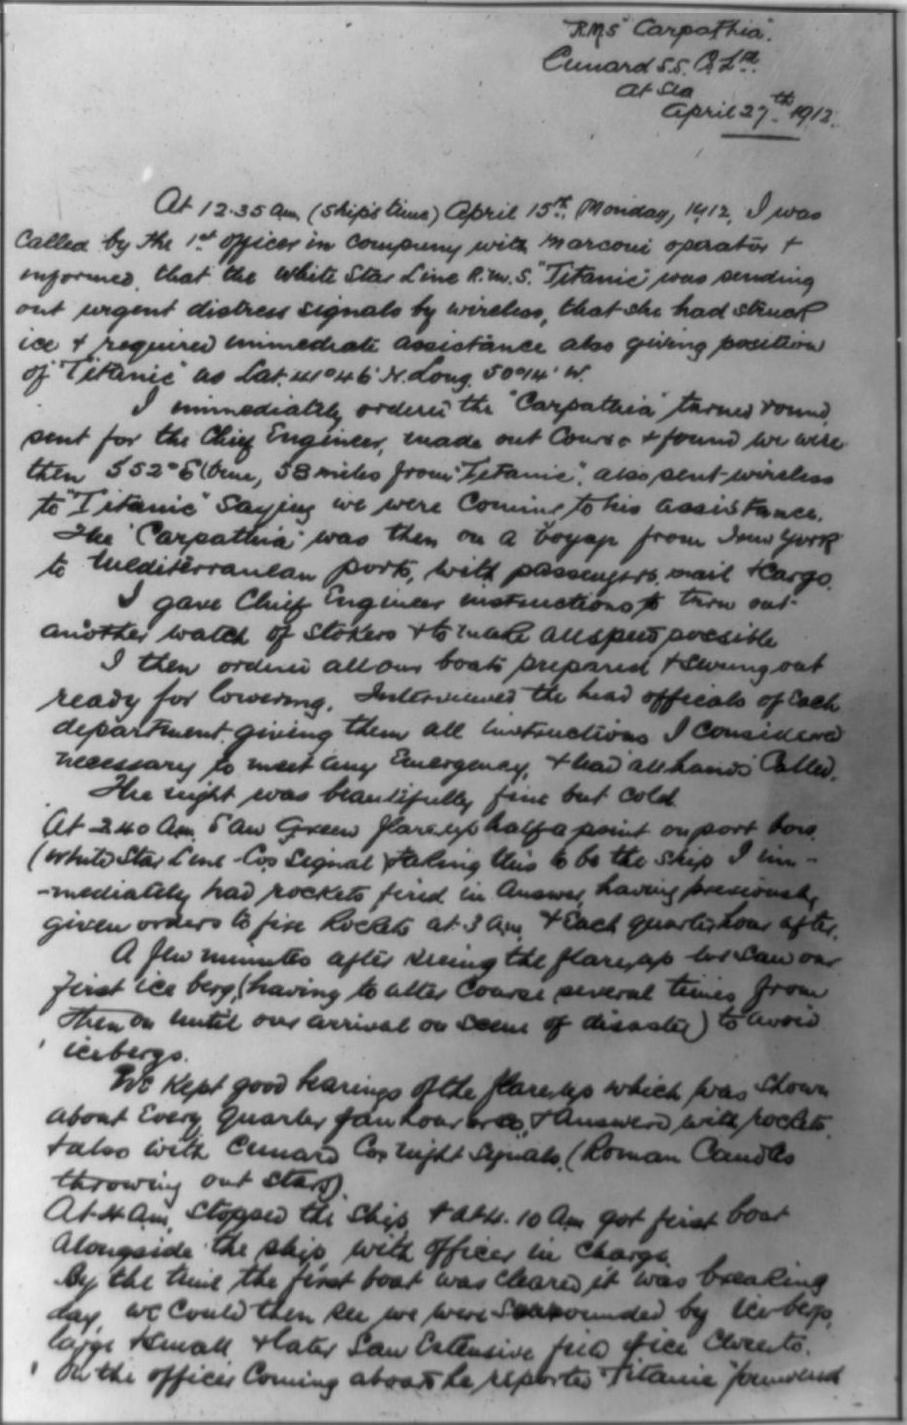 "RMS" Carpathia".
Cunard S.S. Co Ltd.
At Sea
April 27th 1912.
At 12.35 am (ship's time) April 15th, Monday, 1912, I was
called by the 1st officer in company with Marconi operator +
informed, that the White Star Line R.M.S. "Titanic" was sending
out urgent distress signals by wireless, that she had struck
ice + required immediate assistance also giving position
of "Titanic" as Lat. 41°46' N. Long. 50°14' W.
I immediately ordered the "Carpathia" turned round,
sent for the Chief Engineer, made out Course + found we were
then S 52° E (true), 58 miles from "Titanic", also sent wireless
to "Titanic" saying we were coming to his assistance.
The "Carpathia" was then on a voyage from New York
to Mediterranean ports, with passengers, mail + Cargo.
I gave Chief Engineer instructions to turn out
another watch of stokers + to make all speed possible
I then ordered all our boats prepared + swung out
ready for lowering. Interviewed the head officials of each
department giving them all instructions I considered
necessary to meet any Emergency, + had all hands Called.
The night was beautifully fine but cold.
At 2.40 Am Saw Green flare up half a point on port bow.
(White Star Line Cos Signal) taking this to be the ship I im-
-mediately had rockets fired in Answer, having previously
given orders to fire Rockets at 3 am, + Each quarter hour after.
A few minutes after seeing the flare up we saw our
first ice berg, (having to alter Course several times from
then on until our arrival on scene of disaster) to avoid
icebergs.
We kept good bearings of the flare up which was shown
about Every quarter of an hour + answered with rockets,
+ also with Cunard Cos night signals, (Roman Candles
throwing out stars).
At 4 am, stopped the ship, + at 4.10 Am got first boat
alongside the ship, with officer in charge.
By the time the first boat was cleared it was breaking
day, we could then see we were surrounded by ice bergs,
large + small + later Saw Extensive field of ice
On the officer Coming aboard he reported "Titanic" foundered